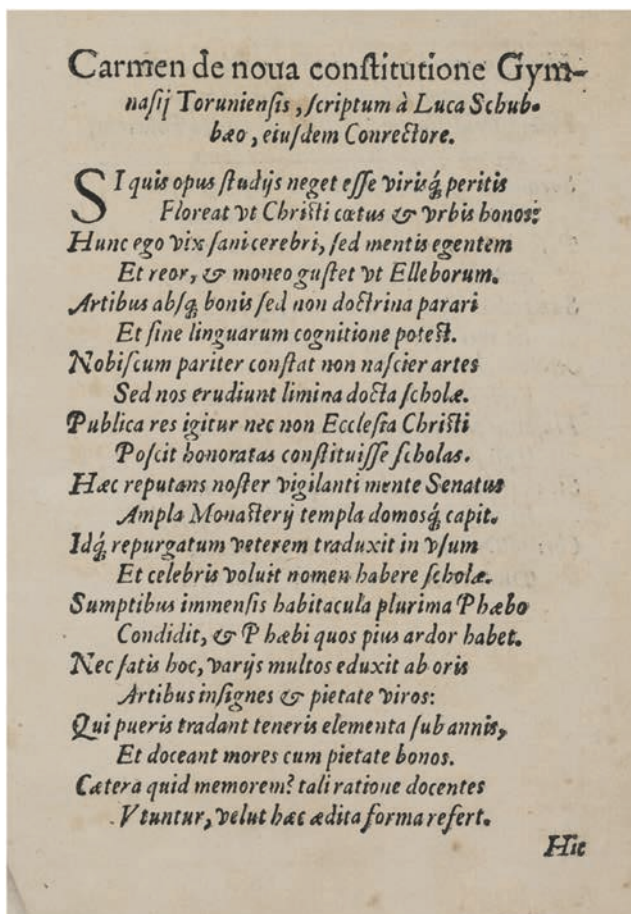 Carmen de noua conſtitutione Gym-
naſij Torunienſis, ſcriptum à Luca Schub-
bæo, eiuſdem Conrectore.
SI quis opus ſtudijs neget eſſe virisq́; peritis
Floreat vt Chriſti cœtus & vrbis honos:
Hunc ego vix ſani cerebri, ſed mentis egentem
Et reor, & moneo guſtet vt Elleborum.
Artibus abſq́; bonis ſed non doctrina parari
Et ſine linguarum cognitione poteſt.
Nobiſcum pariter conſtat non naſcier artes
Sed nos erudiunt limina docta ſcholæ.
Publica res igitur nec non Eccleſia Chriſti
Poſcit honoratas conſtituiſſe ſcholas.
Hæc reputans noſter vigilanti mente Senatus
Ampla Monaſterij templa domosq́; capit.
Idq́; repurgatum veterem traduxit in vſum
Et celebris voluit nomen habere ſcholæ.
Sumptibus immenſis habitacula plurima Phæbo
Condidit, & Phæbi quos pius ardor habet.
Nec ſatis hoc, varijs multos eduxit ab oris
Artibus inſignes & pietate viros:
Qui pueris tradant teneris elementa ſub annis,
Et doceant mores cum pietate bonos.
Cætera quid memorem? tali ratione docentes
Vtuntur, velut hæc ædita forma refert.
Hic